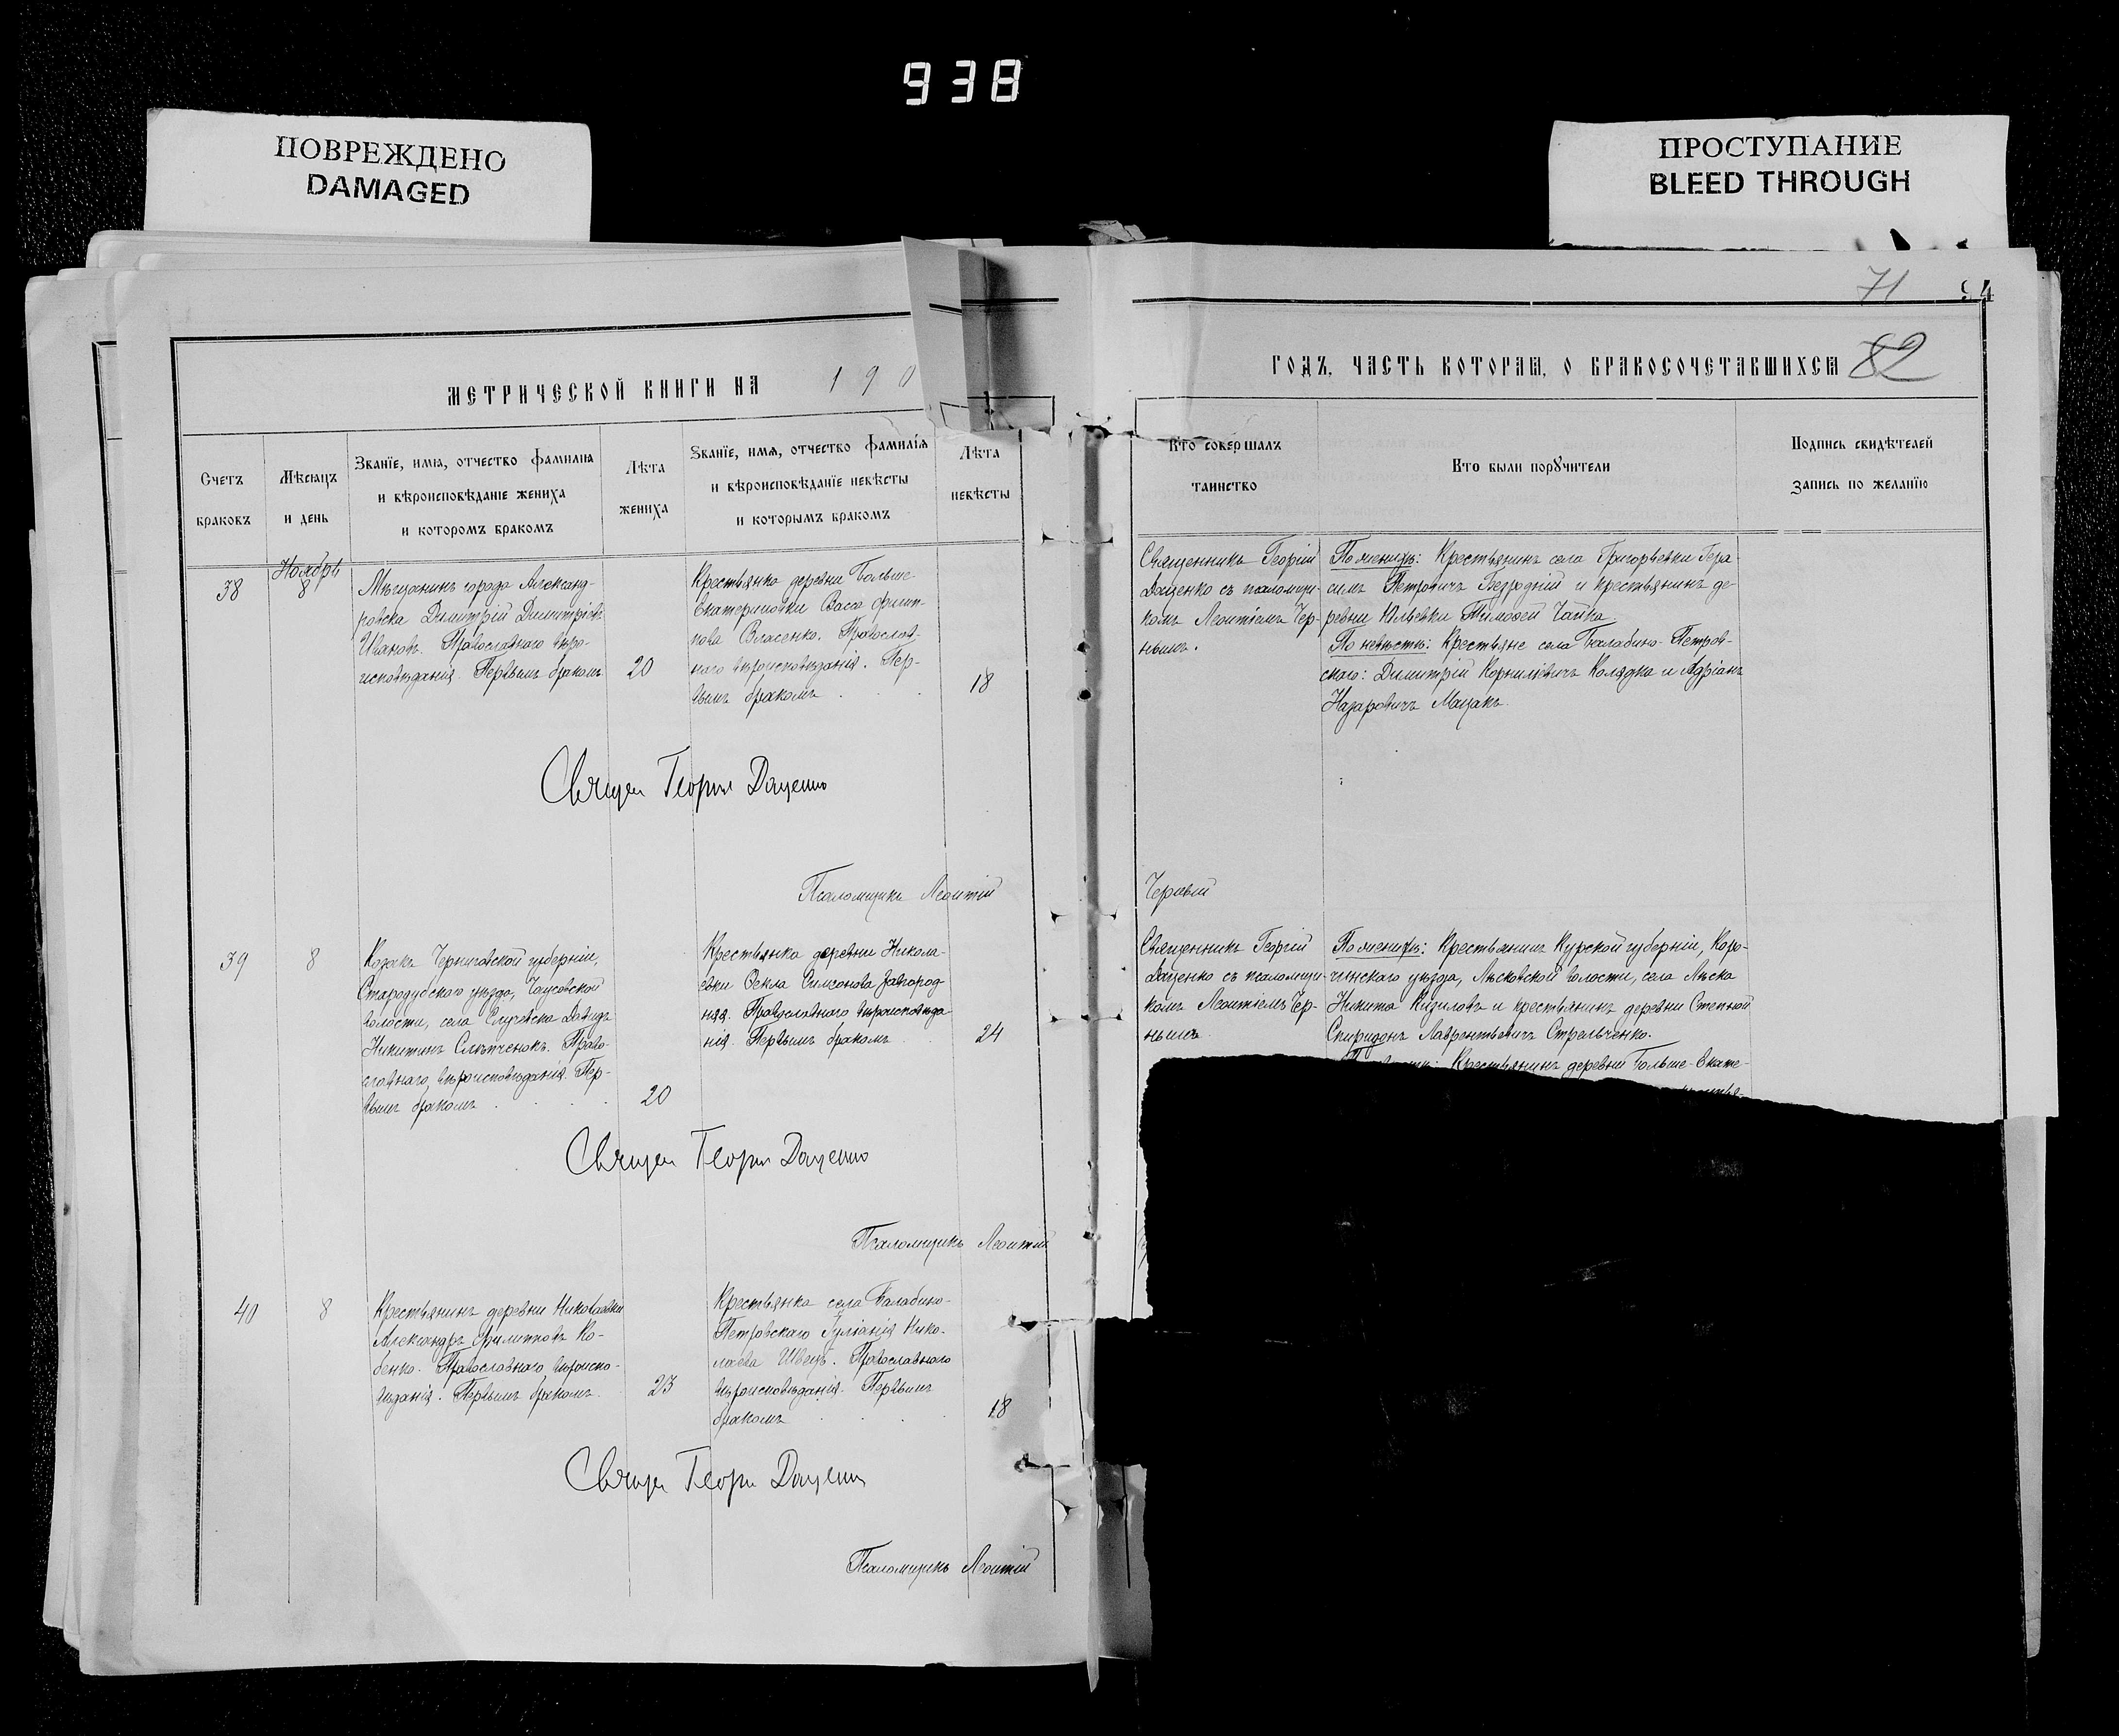 938
ПОВРЕЖДЕНО
DAMAGED
ПРОСТУПАНИЕ
BLEED THROUGH
71
94
МЕТРИЧЕСКОЙ КНИГИ НА 190
ГОДЪ, ЧАСТЬ КОТОРАЯ, О БРАКОСОЧЕТАВШИХСЯ 82
Счетъ
браковъ
Мѣсяцъ
и день
Званїе, имя, отчество фамилия
и вѣроисповѣданіе жениха
и которомъ бракомъ
Лѣта
жениха
Званїе, имя, отчество фамилїя
и вѣроисповѣданїе невѣсты
и которымъ бракомъ
Лѣта
невѣсты
Кто совершалъ
таинство
Кто были поручители
Подпись свидѣтелей
запись по желанїю
38
Ноябрь
8
Мѣщанинъ города Александ-
ровска Димитрій Димитріевъ
Ивановъ. Православнаго вѣро-
исповѣданія. Первымъ бракомъ
20
Крестьянка деревни Больше-
Екатериновки Васса Филип-
пова Власенко. Православ-
наго вѣроисповѣданія. Пер-
вымъ бракомъ
18
Священникъ Георгій
Даценко съ псаломщи-
комъ Леонтіемъ Чер-
нымъ.
По женихѣ: Крестьянинъ села Григорьевки Гера-
симъ Петровичъ Безродній и крестьянинъ де-
ревни Юльевки Тимофей Чайка
По невѣстѣ: Крестьяне села Балабино-Петров-
скаго: Димитрій Корниліевичъ Колядка и Адріанъ
Назаровичъ Мацакъ.
Священ Георгій Даценко
Псаломщикъ Леонтій
Черный
39
8
Козакъ Черниговской губерніи,
Стародубскаго уѣзда,
волости, села Давидъ
Никитинъ Слѣпченокъ. Право-
славнаго вѣроисповѣданія. Пер-
вымъ бракомъ
20
Крестьянка деревни Никола-
евки Фекла Симонова Загород-
няя. Православнаго вѣроисповѣда
нія. Первымъ бракомъ
24
Священникъ Георгій
Даценко съ псаломщи-
комъ Леонтіемъ Чер-
нымъ
По женихѣ: Крестьянинъ Курской губерніи, Коро-
чинскаго уѣзда, Лѣсковской волости, села Лѣска
Никита Кизиловъ и крестьянинъ деревни Степной
Спиридонъ Лаврентьевичъ Стрельченко.
Крестьянинъ деревни Больше-Екате-
Священ Георгій Даценко
Псаломщикъ Леонтій
40
8
Крестьянинъ деревни Николаевки
Александръ Филипповъ Ко-
бенко. Православнаго вѣроиспо-
вѣданія. Первымъ бракомъ
23
Крестьянка села Балабино-
Петровскаго Іуліанія Нико-
лаева Швецъ. Православнаго
вѣроисповѣданія. Первымъ
бракомъ
18
Священ Георгій Даценко
Псаломщикъ Леонтій